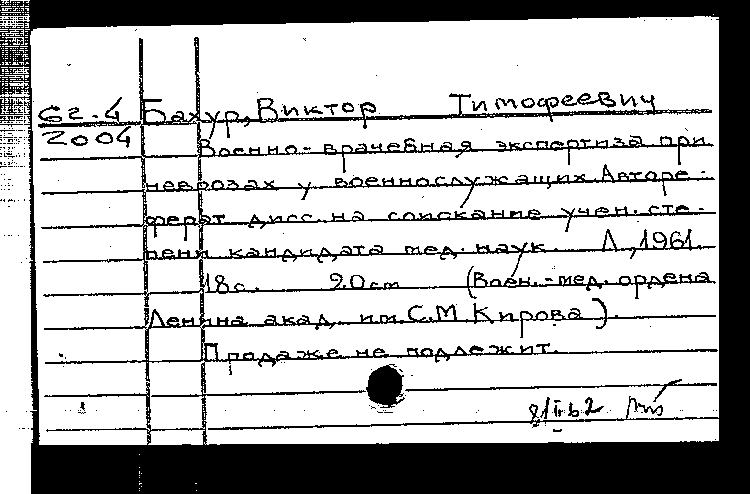 62-4 Бахур, Виктор Тимофеевич
2004
Военно-врачебная экспертиза при
неврозах у военнослужащих. Авторе-
ферат дисс. на соискание учен. сте-
пени кандидата мед. наук. Л., 1961.
18 с. 20 см (Воен.-мед. ордена
Ленина акад. им. С.М. Кирова).
Продаже не подлежит.
8/II 62